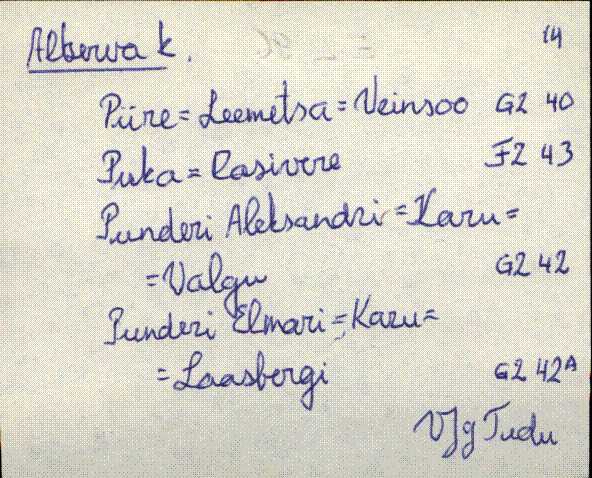 14
Alberva k.
Piire = Leemetsa = Veinsoo G2 40
Puka = Casivere F2 43
Punderi Aleksandri = Karu =
= Valgu G2 42
Punderi Elmari = Karu =
= Laasbergi G2 42A
VJg Tudu